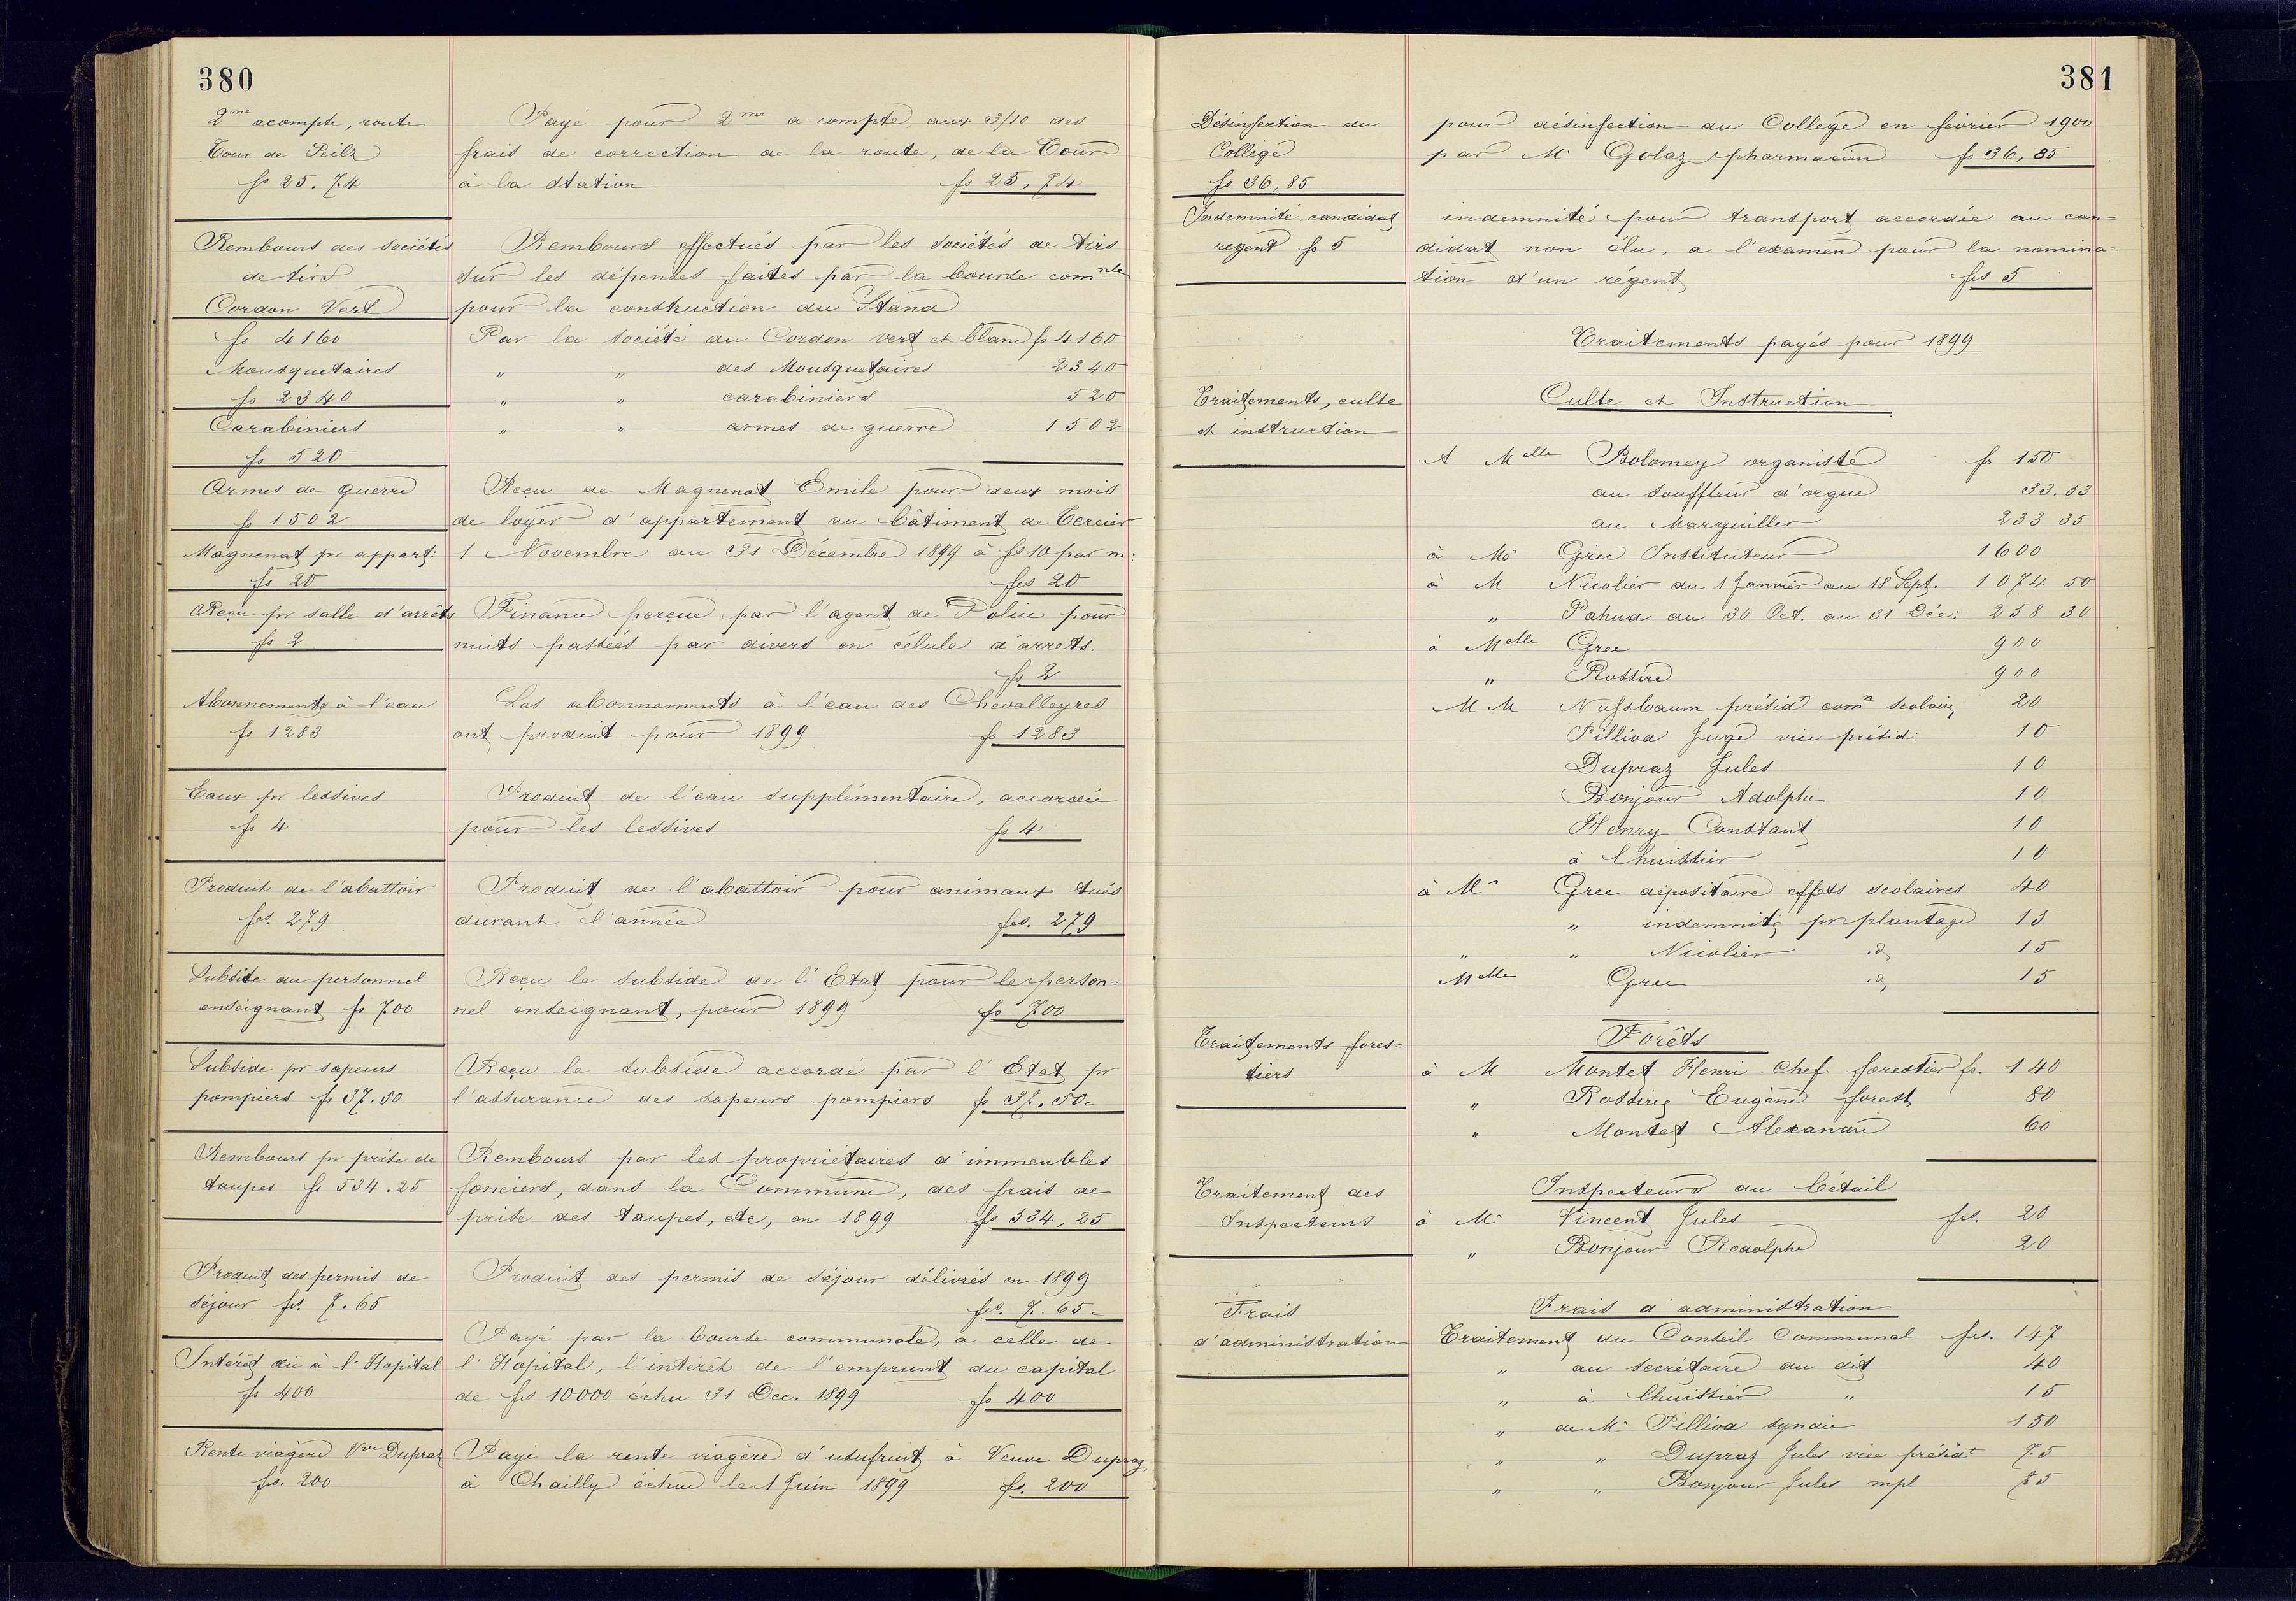 380
2me acompte, route
Tour de Peilz
fs 25.74
Payé pour 2me a-compte aux 3/10 des
frais de correction de la route, de la Tour
à la station fs 25,74
Rembours des sociétés
de tirs
Cordon Vert
fs 4160
Mousquetaires
fs 2340
Carabiniers
fs 520
Armes de guerre
fs 1502
Rembours effectués par les sociétés de tirs
sur les dépenses faites par la bourse comnle
pour la construction du Stand
Par la société du Cordon vert et blanc fs 4160
" " des Mousquetaires 2340
" " carabiniers 520
" " armes de guerre 1502
Magnenat pr appart:
fs 20
Reçu de Magnenat Emile pour deux mois
de loyer d'appartement au bâtiment de Cercier
1 Novembre au 31 Décembre 1899 à fs 10 par m:
fcs 20
Reçu pr salle d'arrêts
fs 2
Finance perçue par l'agent de Police pour
nuits passées par divers en célule d'arrets.
fs 2
Abonnements à l'eau
fs 1283
Les abonnements à l'eau des Chevalleyres
ont produit pour 1899 fs 1283
Eaux pr lessives
fs 4
Produit de l'eau supplémentaire, accordée
pour les lessives fs 4
Produit de l'abattoir
fcs. 279
Produit de l'abattoir pour animaux tués
durant l'année fcs. 279
Subside au personnel
enseignant fs 700
Reçu le subside de l'Etat pour le person=
nel enseignant, pour 1899 fs 700
Subside pr sapeurs
pompiers fs 37.50
Reçu le subside accordé par l'Etat pr
l'assurance des sapeurs pompiers fs 37.50
Rembours pr prise de
taupes fs 534.25
Rembours par les propriétaires d'immeubles
fonciers, dans la Commune, des frais de
prise des taupes, etc, en 1899 fs 534,25
Produit des permis de
séjour frs. 7.65
Produit des permis de séjour délivrés en 1899
fcs. 7.65
Intérêt dû à l'Hopital
fs 400
Payé par la bourse communale, à celle de
l'Hopital, l'intérêt de l'emprunt du capital
de fcs 10000 échu 31 Dec. 1899 fs 400
Rente viagère Vve Dupraz
frs. 200
Payé la rente viagère d'usufruit à Veuve Dupraz
à Chailly échue le 1 Juin 1899 fs. 200
381
Désinfection du
Collège
fs 36,85
pour désinfection du College en février 1900
par Mr Golaz pharmacien fs 36,85
Indemnité candidat
regent fs 5
indemnité pour transport accordée au can=
didat non élu, a l'examen pour la nomina=
tion d'un régent fcs 5
Traitements payés pour 1899
Traitements, culte
et instruction
Culte et Instruction
A Melle Bolomey organiste fs 150
au souffleur d'orgue 33.53
au Marguiller 233 35
à Mr Grec Instituteur 1600
à M Nicolier du 1 Janvier au 18 Sept. 1074 50
" Pahud du 30 Oct. au 31 Déc: 258 30
à Melle Grec 900
" Rossire 900
MM Nussbaum présidt comn scolaire 20
Pilliod Juge vice présid: 10
Dupraz Jules 10
Bonjour Adolphe 10
Henry Constant 10
à l'huissier 10
à Mr Grec dépositaire effets scolaires 40
" indemnité pr plantage 15
" " Nicolier id 15
Melle Grec id 15
Traitements fores=
tiers
Forêts
à M Montet Henri Chef forestier fs. 140
" Rossire Eugène forest 80
" Montet Alexandre 60
Traitement des
Inspecteurs
Inspecteurs du bétail
à Mr Vincent Jules frs. 20
" Bonjour Rodolphe 20
Frais
d'administration
Frais d'administration
Traitement du Conseil Communal fcs. 147
" au secrétaire du dit 40
" à l'huissier " 15
" de Mr Pilliod syndic 150
" " Dupraz Jules vice présidt 75
" " Bonjour Jules mpl 75